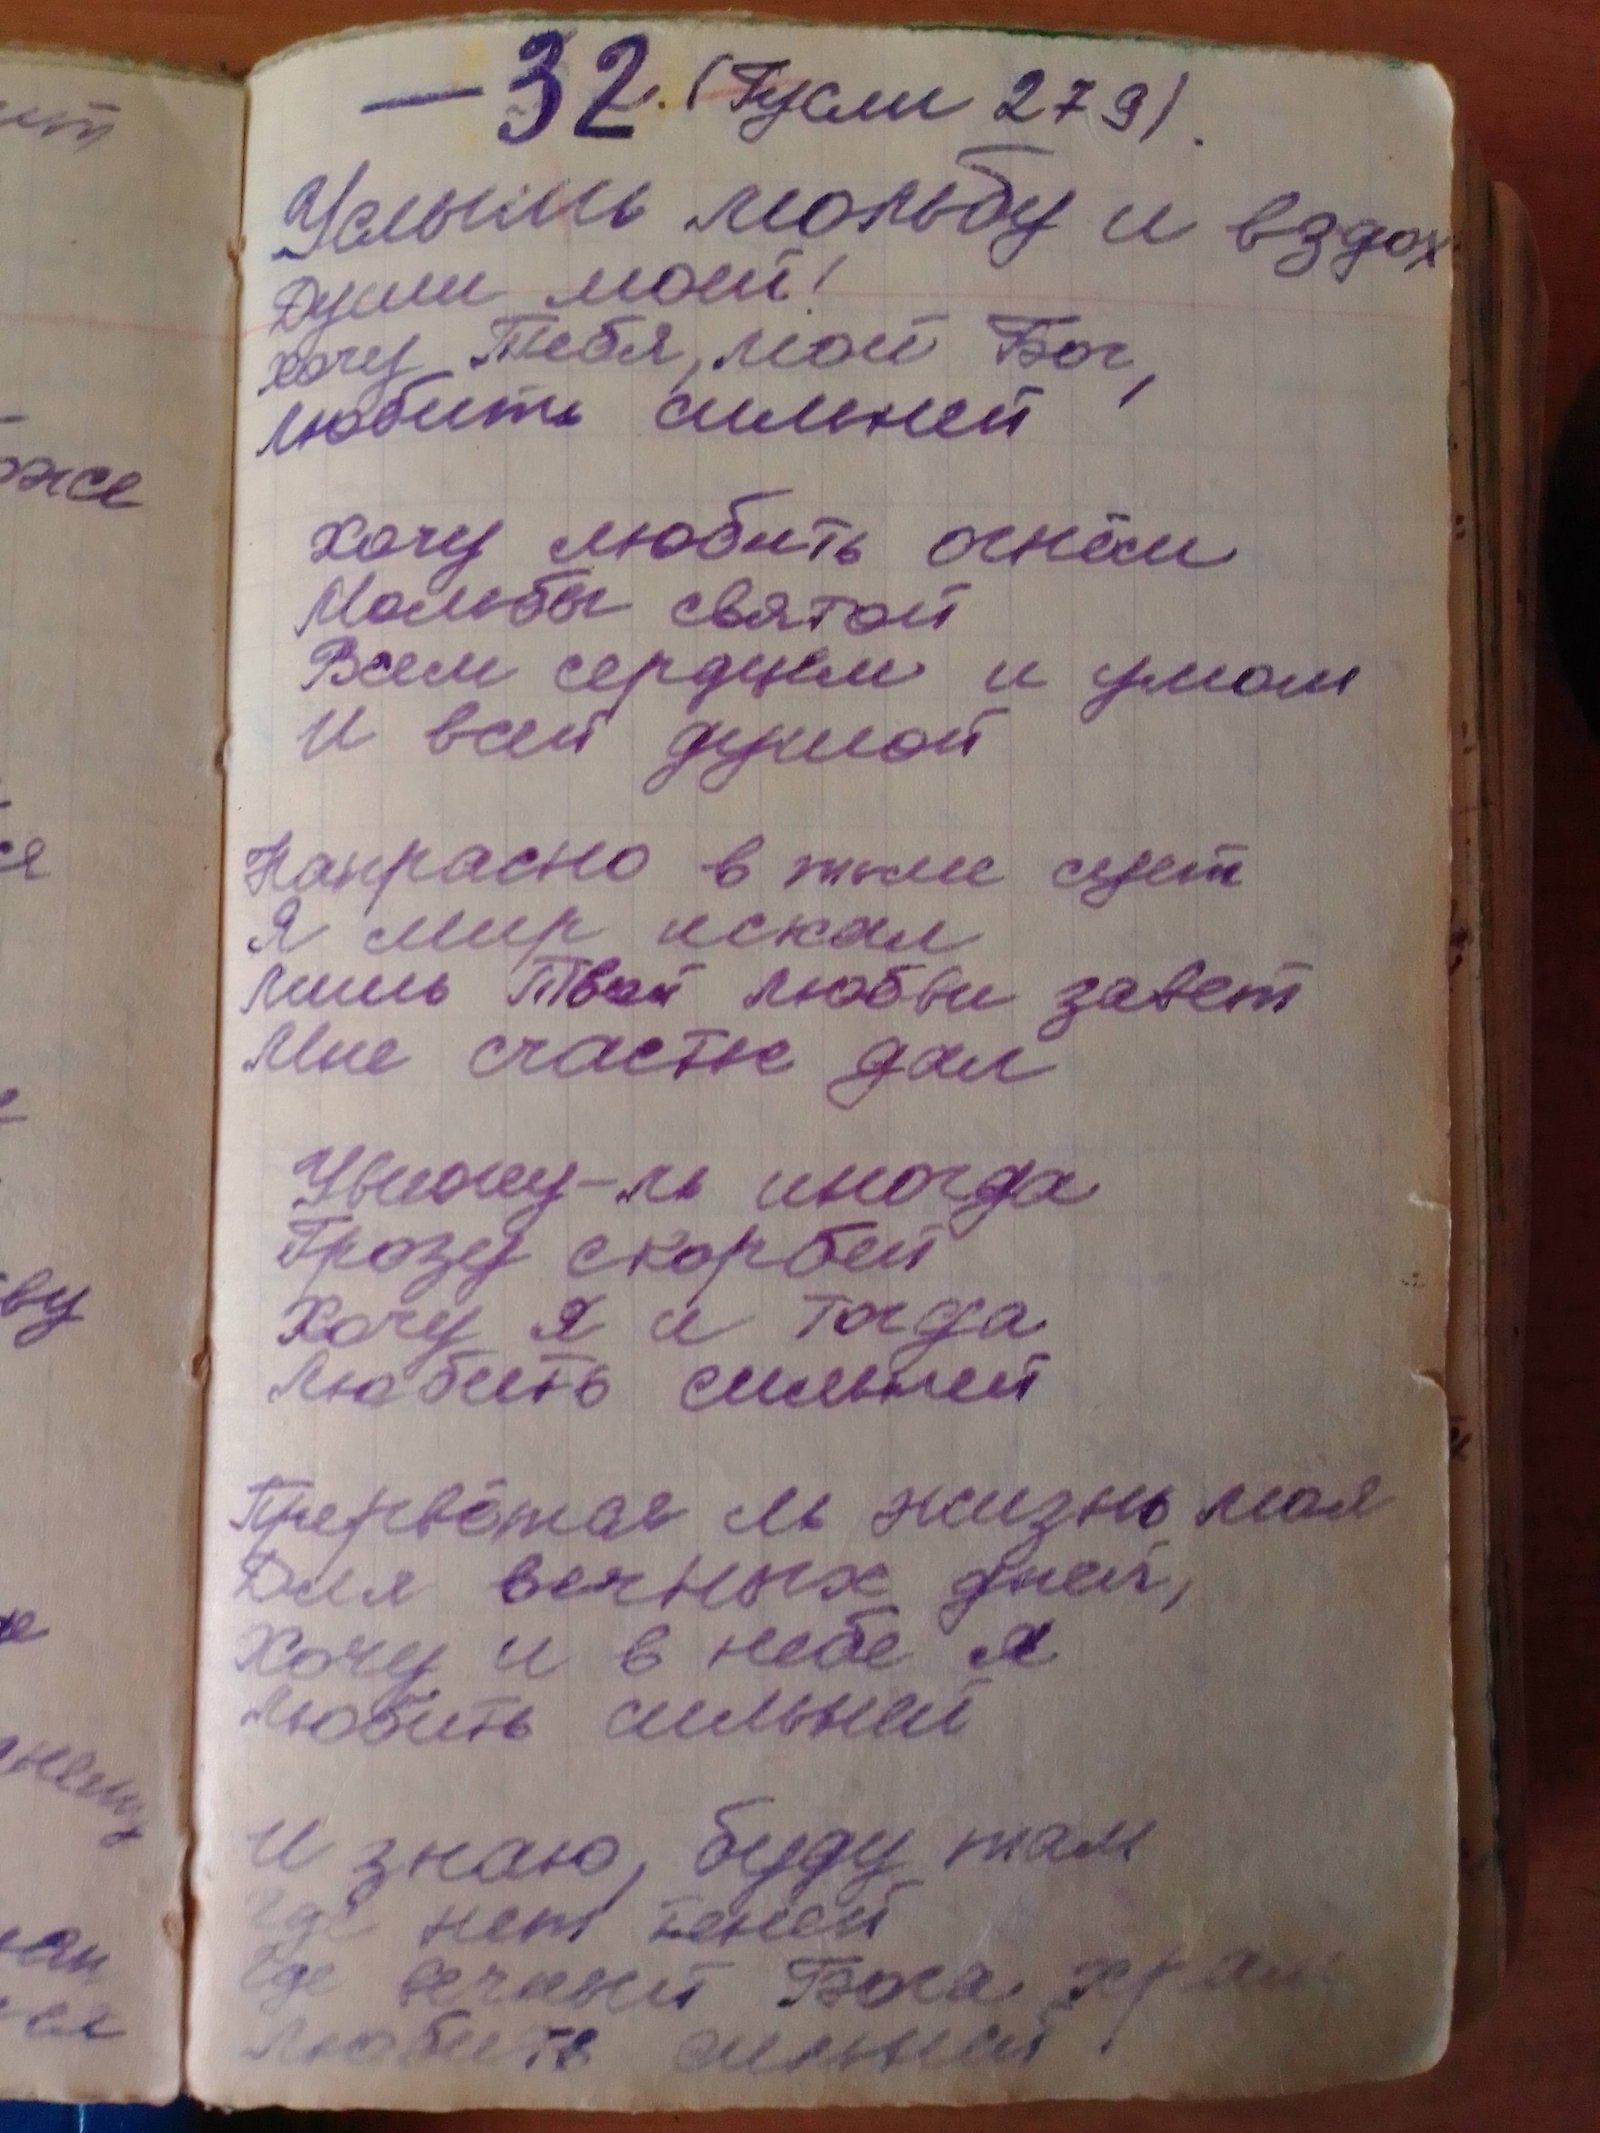 ит
— 32. (Гусли 279).
Услышь мольбу и вздох
Души моей!
Хочу Тебя, мой Бог,
Любить сильней
оже
Хочу любить огнём
Мольбы святой
Всем сердцем и умом
И всей душой
Напрасно в тьме сует
ся
Я мир искал
Лишь Твой любви завет
Мне счастье дал
Увижу-ль иногда
Грозу скорбей
ву
Хочу я и тогда
Любить сильней
Прервётся ль жизнь моя
Для вечных дней,
Хочу и в небе я
Любить сильней
нему
И знаю, буду там
Где нет теней
Где вечный Бога храм
Любить сильней